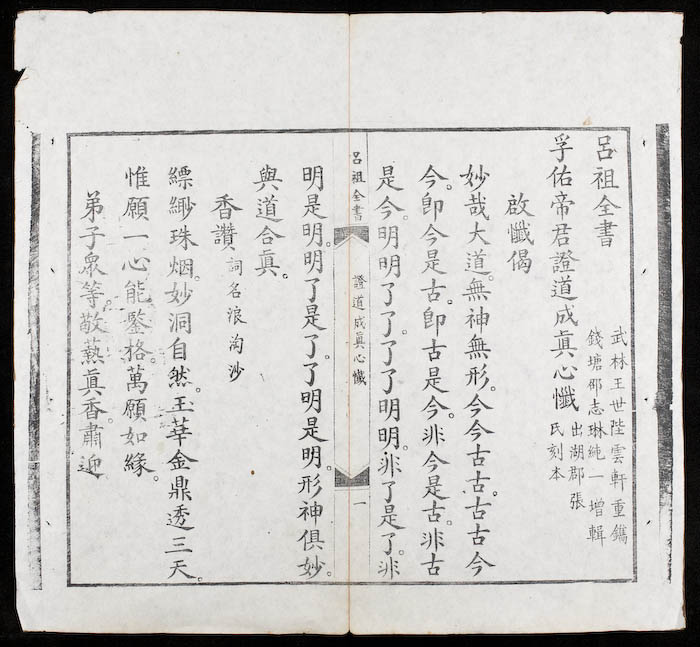 呂祖全書
武林王世陛雲軒重鐫
錢塘邵志琳純一增輯
孚佑帝君證道成眞心懺
出湖郡張
氏刻本
啟懺偈
妙哉大道。無神無形。今今古古。古古今
今。卽今是古。卽古是今。非今是古。非古
是今。明明了了。了了明明。非了是了。非
呂祖全書
證道成眞心懺
一
明是明。明了是了。了明是明。形神俱妙。
與道合眞。
香讚 詞名浪淘沙
縹緲珠烟。妙洞自然。玉華金鼎透三天。
惟願一心能鑒格。萬願如緣。
弟子衆等。敬爇眞香。肅迎